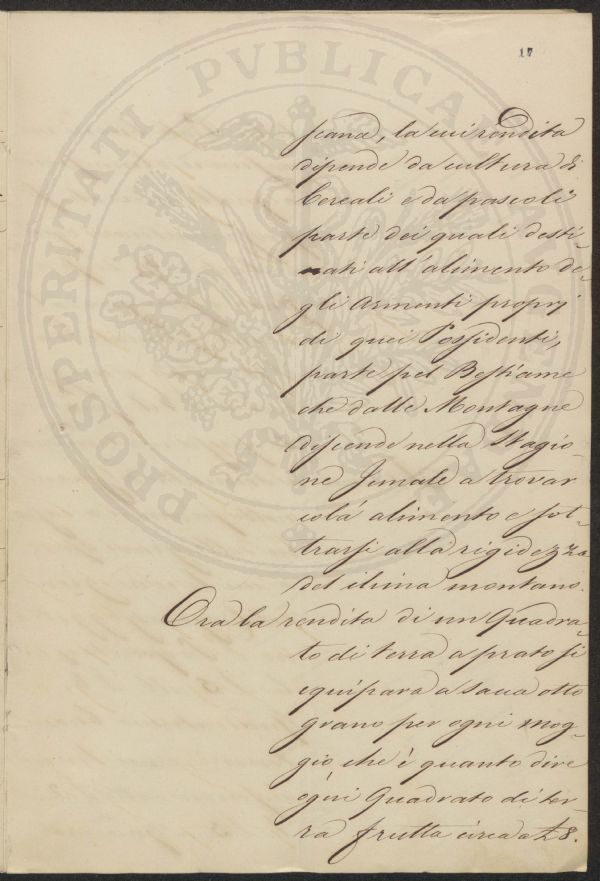 17
scana, la cui rendita
dipende da cultura di
Cereali e da pascoli
parte dei quali desti-
nati all'alimento de-
gli Armenti proprj
di quei Possidenti,
parte pel Bestiame
che dalle Montagne
discende nella Stagio-
ne Jemale a trovar
colà alimento e sot-
trarsi alla rigidezza
del clima montano.
Ora la rendita di un Quadra-
to di terra a prato si
equipara a sacca otto
grano per ogni mog-
gio, che è quanto dire
ogni Quadrato di ter-
ra frutta circa a £ 8.
PROSPERITATI PVBLICAE